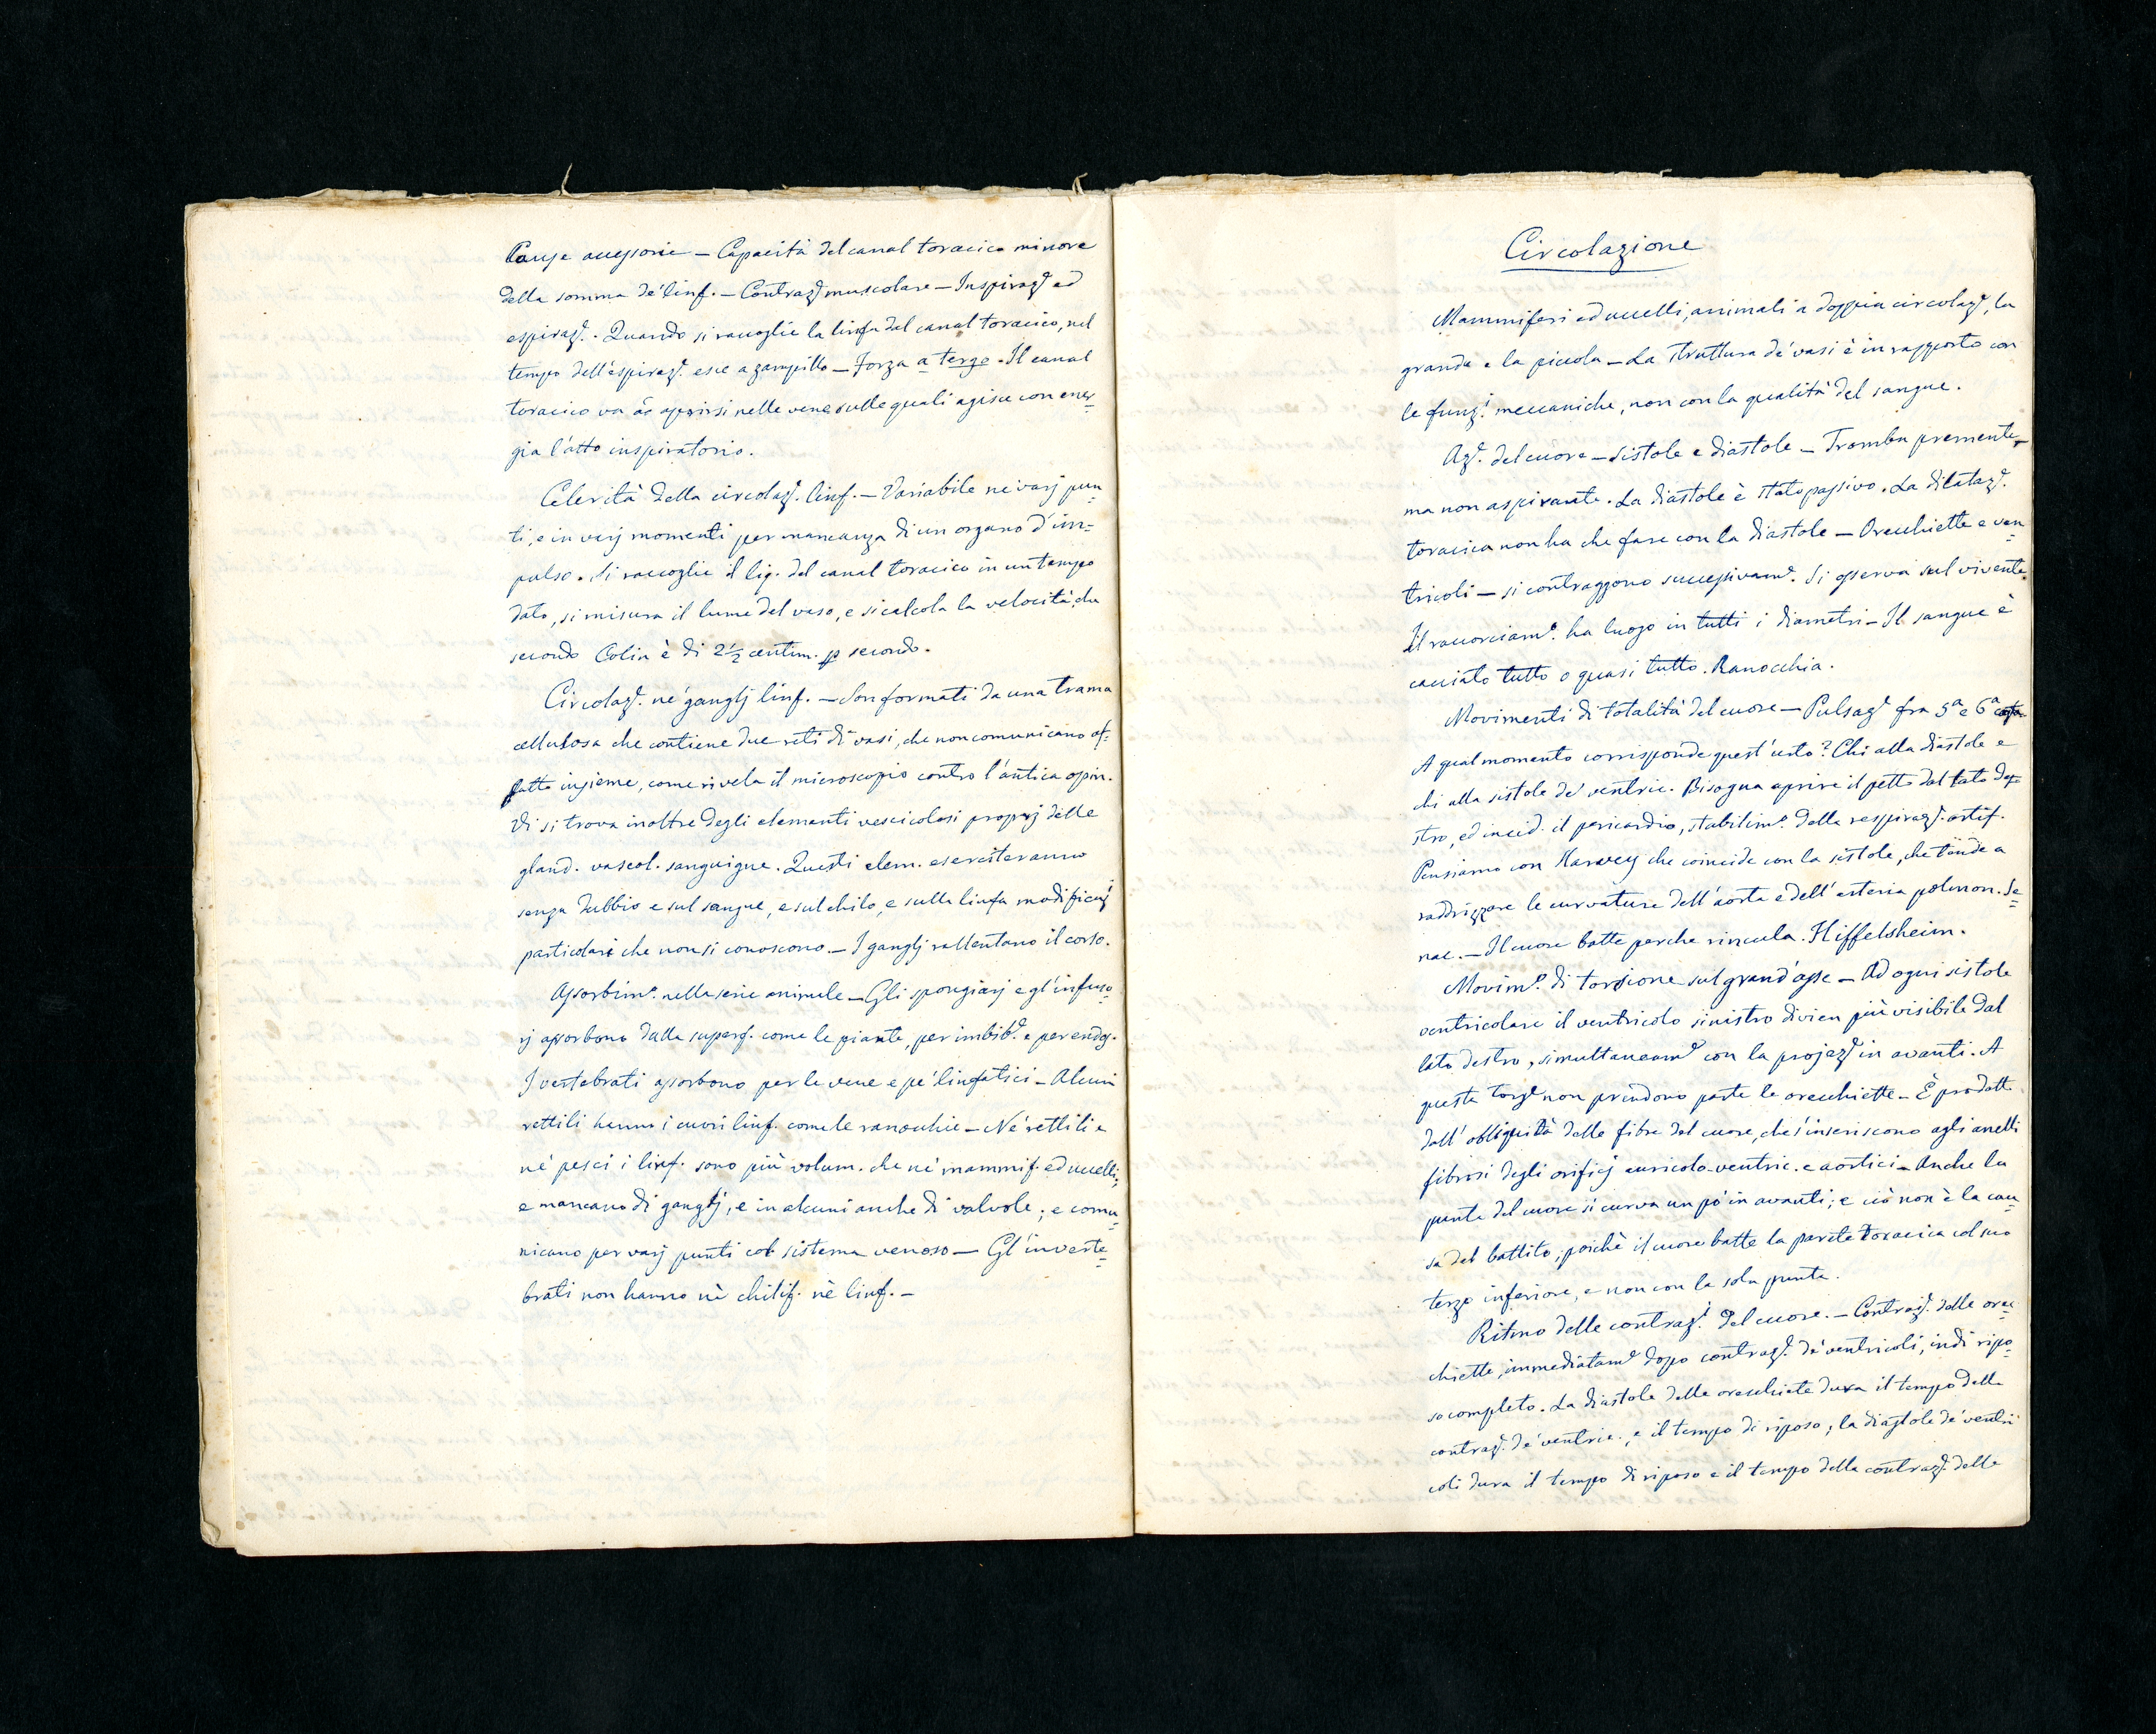 Cause accessorie — Capacità del canal toracico minore
della somma de' linf. — Contraz.e muscolare — Inspiraz.e ed
espiraz.e. Quando si raccoglie la linfa dal canal toracico, nel
tempo dell'espiraz.e esce a zampillo — Forza a tergo. Il canal
toracico va ad aprirsi nelle vene sulle quali agisce con ener=
gia l'atto inspiratorio.
Celerità della circolaz.e linf. — Variabile ne' varj pun=
ti, e in varj momenti per mancanza di un organo d'im=
pulso. Si raccoglie il liq. del canal toracico in un tempo
dato, si misura il lume del vaso, e si calcola la velocità, che
secondo Colin è di 2 1/2 centim. p secondo.
Circolaz.e ne' ganglj linf. — Son formati da una trama
cellulosa che contiene due reti di vasi, che non comunicano af=
fatto insieme, come rivela il microscopio contro l'antica opin.
Vi si trova inoltre degli elementi vescicolosi proprj delle
gland. vascol. sanguigne. Questi elem. eserciteranno
senza dubbio e sul sangue, e sul chilo, e sulla linfa modificaz.i
particolari che non si conoscono — I ganglj rallentano il corso.
Assorbim.o nella serie animale — Gli spongiarj e gl'infuso=
rj assorbono dalla superf. come le piante, per imbib.e e per endos.
I vertebrati assorbono per le vene e pe' linfatici — Alcuni
rettili hanno i cuori linf. come le ranocchie — Ne' rettili e
ne' pesci i linf. sono più volum. che ne' mammif. ed uccelli,
e mancano di ganglj, e in alcuni anche di valvole; e comu=
nicano per varj punti col sistema venoso — Gl'inverte=
brati non hanno nè chilif. nè linf. —
Circolazione
Mammiferi ed uccelli, animali a doppia circolaz.e, la
grande e la piccola — La struttura de' vasi è in rapporto con
le funz.i meccaniche, non con la qualità del sangue.
Az.e del cuore — Sistole e diastole — Tromba premente,
ma non aspirante. La diastole è stato passivo. La dilataz.e
toracica non ha che fare con la diastole — Orecchiette e ven=
tricoli — si contraggono successivam.e Si osserva sul vivente.
Il raccorciam.o ha luogo in tutti i diametri — Il sangue è
cacciato tutto o quasi tutto. Ranocchia.
Movimenti di totalità del cuore — Pulsaz.e fra 5a e 6a costa
A qual momento corrisponde quest'urto? Chi alla diastole e
chi alla sistole de' ventric. Bisogna aprire il petto dal lato de=
stro, ed incid. il pericardio, stabilim.o della respiraz.e artif.
Pensiamo con Harvey che coincide con la sistole, che tende a
raddrizzare le curvature dell'aorta e dell'arteria polmon. Se=
nac. — Il cuore batte perche rincula. Hiffelsheim.
Movim.o di torsione sul grand'asse — Ad ogni sistole
ventricolare il ventricolo sinistro divien più visibile dal
lato destro, simultaneam.e con la projez.e in avanti. A
questa torz.e non prendono parte le orecchiette — È prodotta
dall'obliquità delle fibre del cuore, che s'inseriscono agli anelli
fibrosi degli orificj auricolo-ventric. e aortici — Anche la
punta del cuore si curva un po' in avanti; e ciò non è la cau=
sa del battito, poichè il cuore batte la parete toracica col suo
terzo inferiore, e non con la sola punta.
Ritmo delle contraz.i del cuore. — Contraz.e delle orec=
chiette, immediatam.e dopo contraz.e de' ventricoli, indi ripo=
so completo. La diastole delle orecchiete dura il tempo della
contraz.e de' ventric., e il tempo di riposo; la diastole de' ventri
coli dura il tempo di riposo e il tempo della contraz.e delle